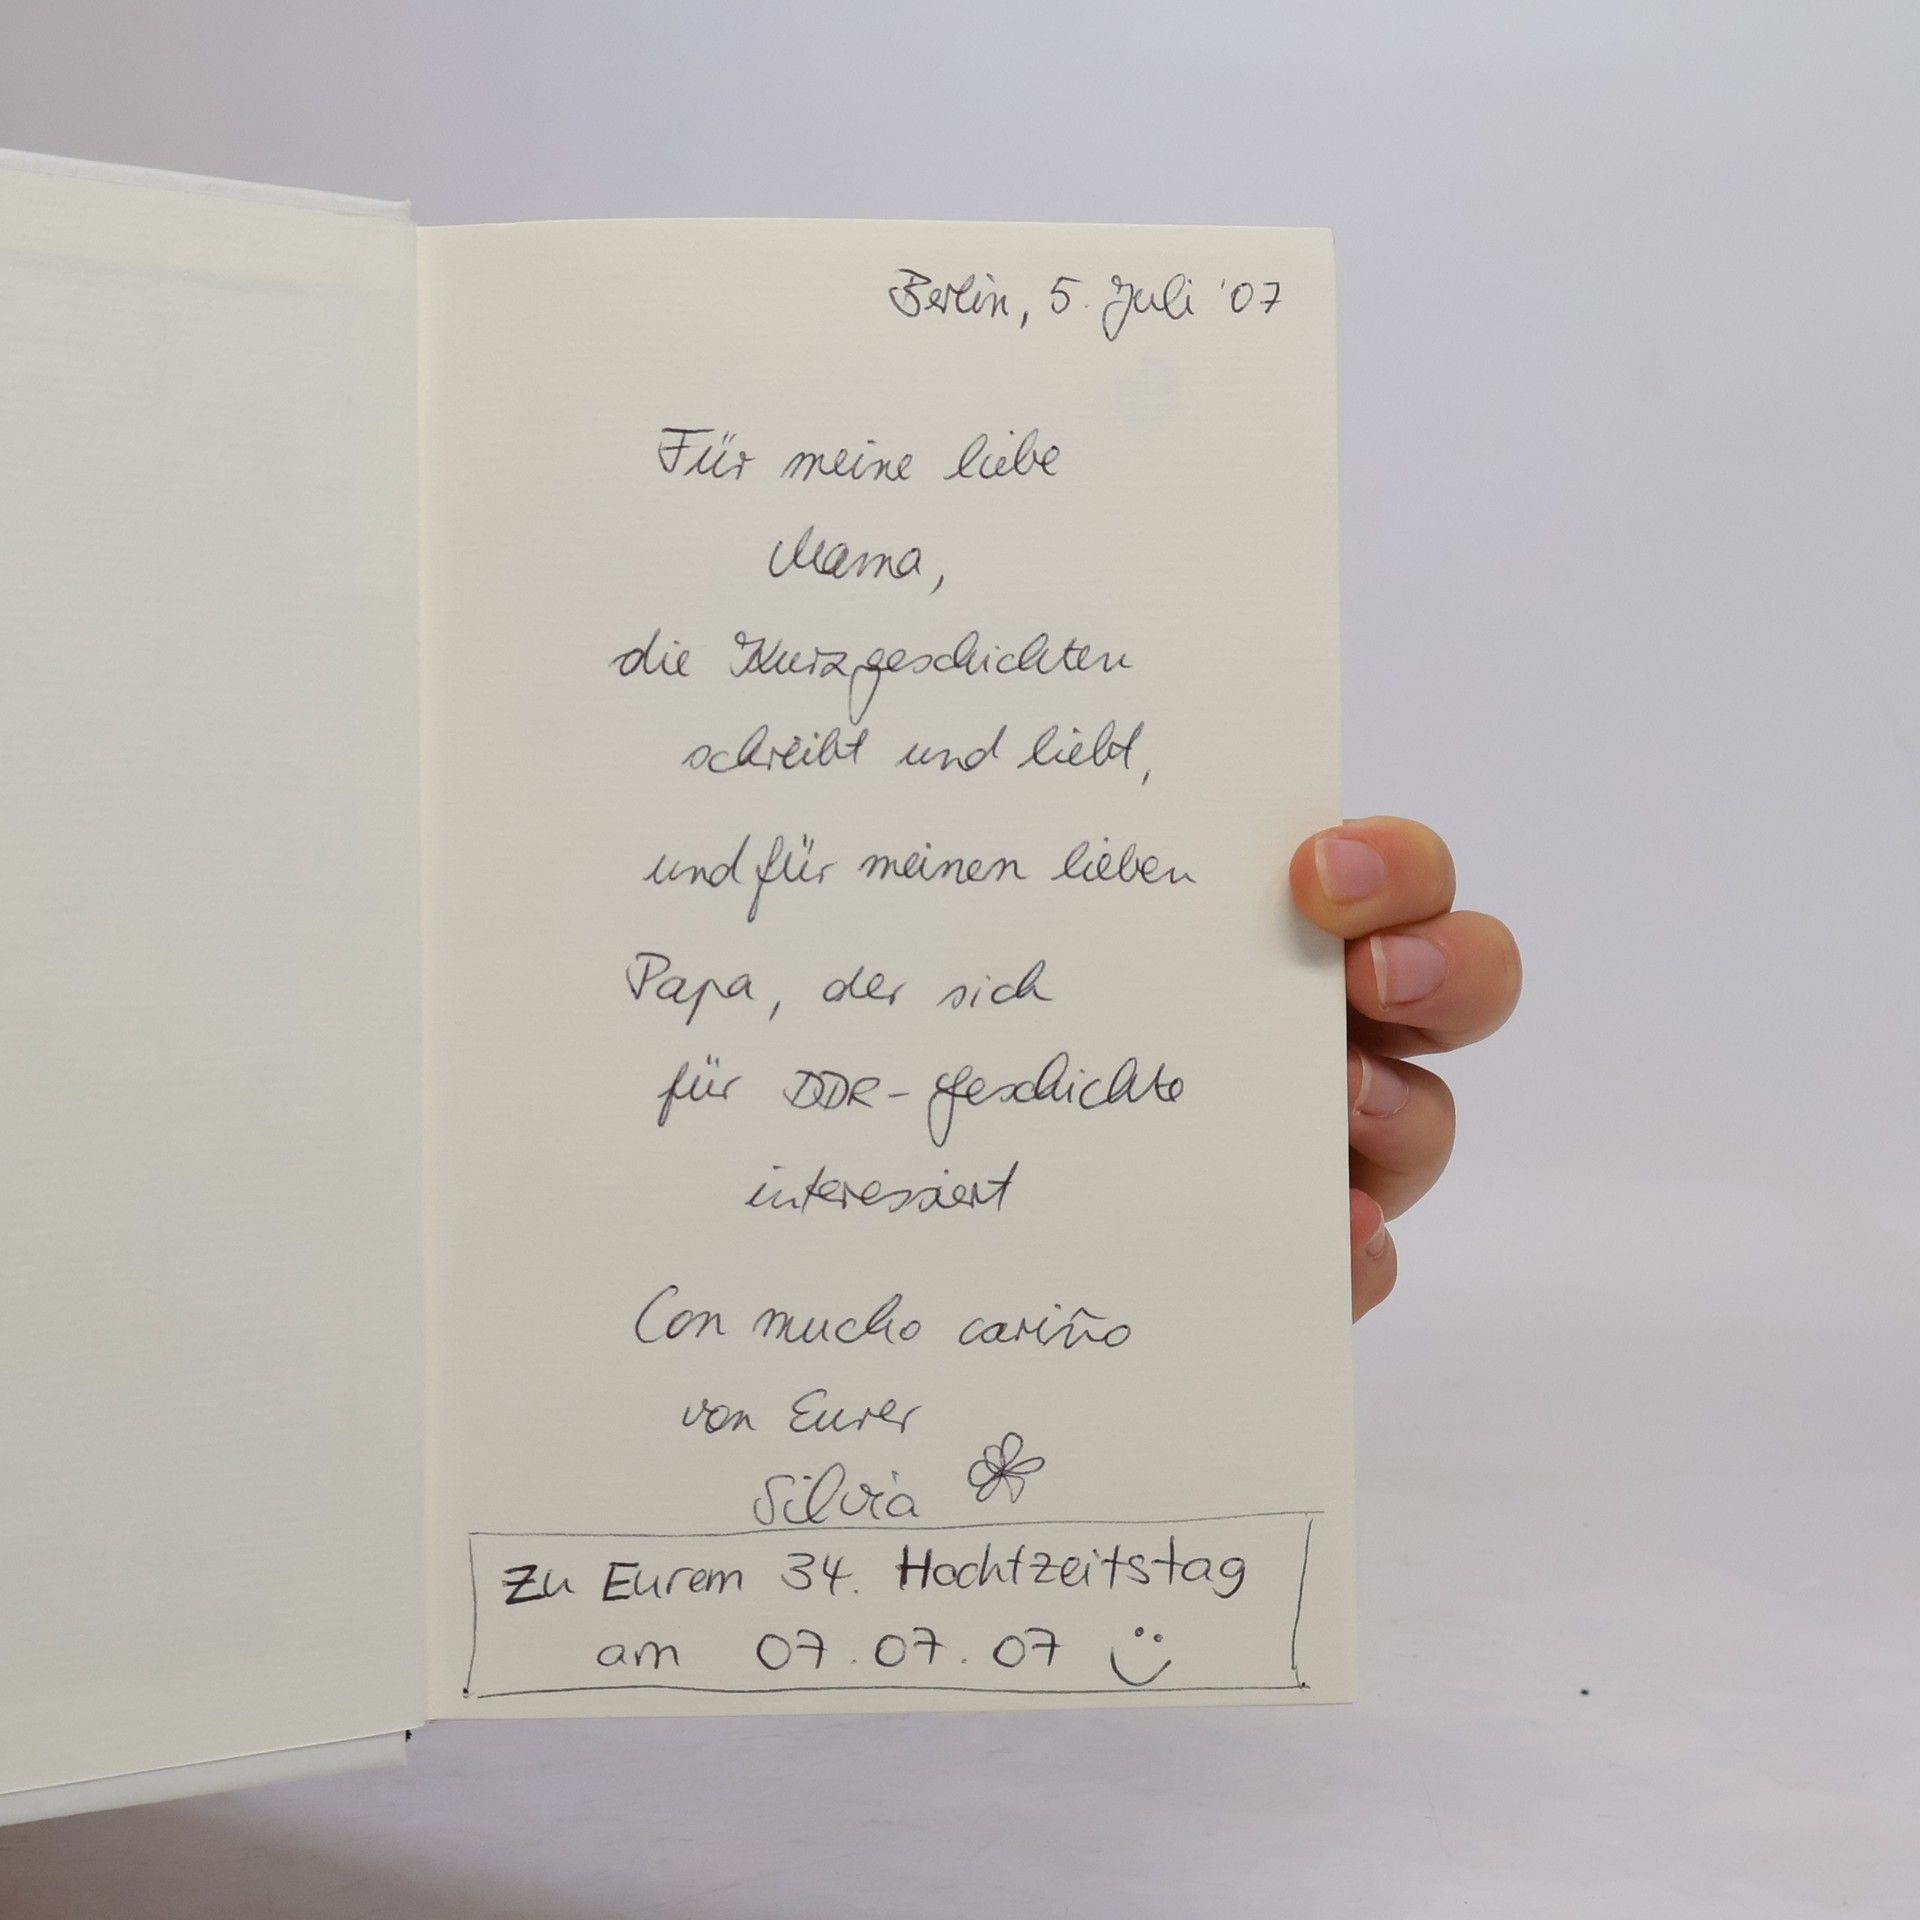 Berlin, 5. Juli '07
Für meine liebe
Mama,
die Kurzgeschichten
schreibt und liebt,
und für meinen lieben
Papa, der sich
für DDR-Geschichte
interessiert
Con mucho cariño
von Eurer
Silvia
Zu Eurem 34. Hochtzeitstag
am 07.07.07